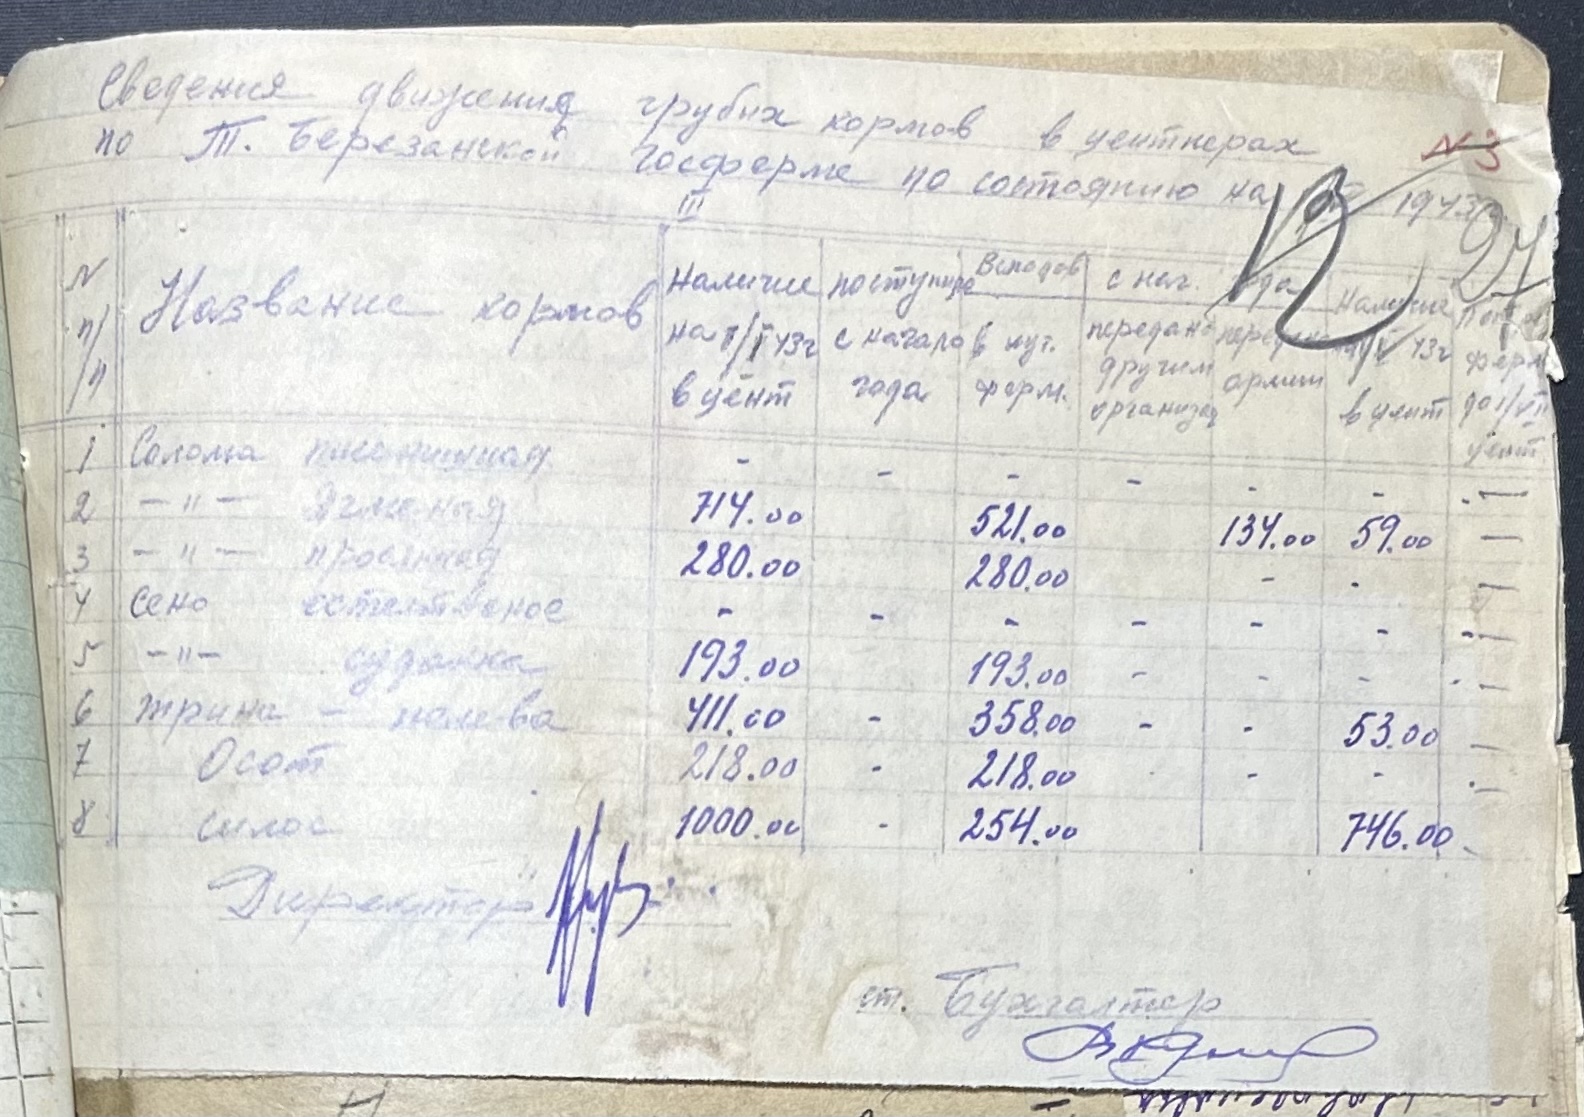 Сведения движения грубых кормов в центнерах
по Т. Березанской Госферме по состоянию на 1943г.
III
N3
27
N п/п Название кормов Наличие на 1/I 43г в цент поступило с начала года Всподов в нут. ферм. с нач. года передано другим организац армии Наличие 43г в цент ферм до 1/VII цент
1 Солома пшеничная - - - - - - —
2 —"— Ячменная 714.00 521.00 134.00 59.00 —
3 —"— просяная 280.00 280.00 - - —
4 Сено естественое - - - - - - —
5 -"- суданка 193.00 193.00 - - - —
6 - полова 411.00 - 358.00 - - 53.00 —
7 Осот 218.00 - 218.00 - - —
8 Силос 1000.00 - 254.00 746.00
Директор
ст. Бухгалтер